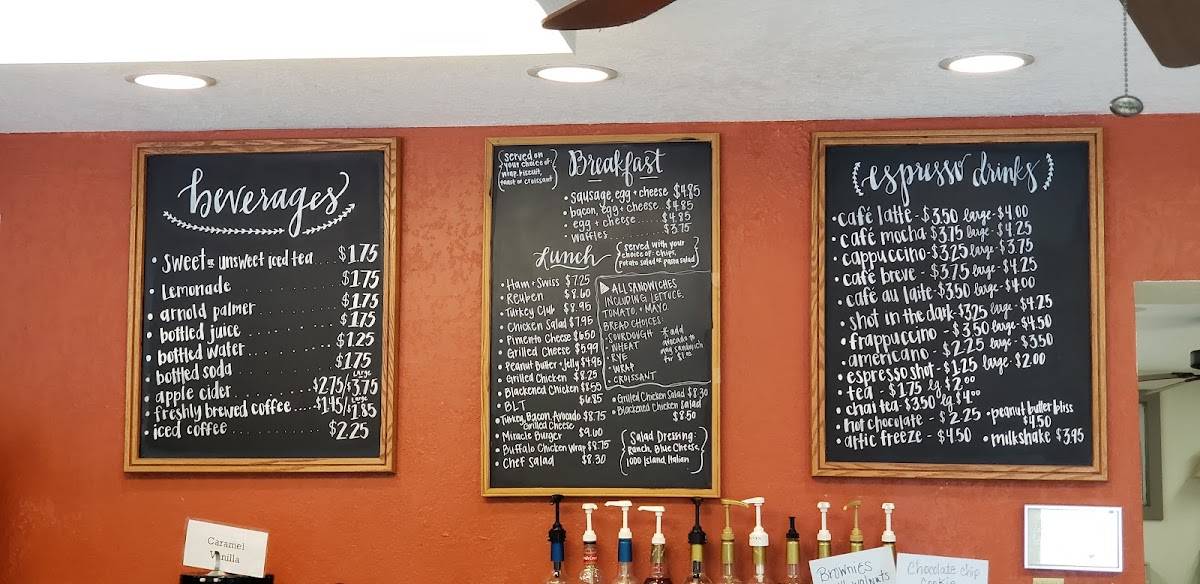 beverages
• sweet or unsweet iced tea ... $1.75
• Lemonade $1.75
• arnold palmer $1.75
• bottled juice $1.75
• bottled water ......... $1.25
• bottled soda $1.75
Large
• apple cider ......... $2.75/$3.75
Large
• freshly brewed coffee ... $1.45/$1.85
• iced coffee ............ $2.25
served on
your choice of:
wrap, biscuit,
toast or croissant
Breakfast
• sausage, egg + cheese $4.85
• bacon, egg + cheese $4.85
• egg + cheese ..... $4.85
• waffles ........ $3.75
Lunch
served with your
choice of: chips,
potato salad or pasta salad
• Ham + Swiss $7.25
• Reuben $8.60
• Turkey Club $8.95
• Chicken Salad $7.95
• Pimento Cheese $6.50
• Grilled Cheese $5.99
• Peanut Butter + Jelly $4.95
• Grilled Chicken $8.25
• Blackened Chicken $8.55
• BLT $6.75
• Turkey, Bacon, Avocado $8.75
Grilled Cheese
• Miracle Burger $9.60
• Buffalo Chicken Wrap $8.75
• Chef Salad $8.30
ALL SANDWICHES
INCLUDING LETTUCE,
TOMATO, + MAYO.
BREAD CHOICES:
- SOURDOUGH
- WHEAT
- RYE
- WRAP
- CROISSANT
* add
avocado to
any sandwich
for $1.00
• Grilled Chicken Salad $8.30
• Blackened Chicken Salad
$8.50
Salad Dressing:
Ranch, Blue Cheese,
1000 Island, Italian
espresso drinks
• café latte - $3.50 large - $4.00
• café mocha $3.75 large - $4.25
• cappuccino - $3.25 large - $3.75
• café breve - $3.75 large - $4.25
• café au laite - $3.50 large - $4.00
• shot in the dark - $3.25 large - $4.25
• frappuccino - $3.50 large - $4.50
• americano - $2.25 large - $3.50
• espresso shot - $1.25 large - $2.00
• tea - $1.75 lg $2.00
• chai tea - $3.50 lg $4.00
• hot chocolate - $2.25
• artic freeze - $4.50
• peanut butter bliss
$4.50
• milkshake $3.95
Caramel
Vanilla
Brownies
walnuts
Chocolate Chip
Cookie